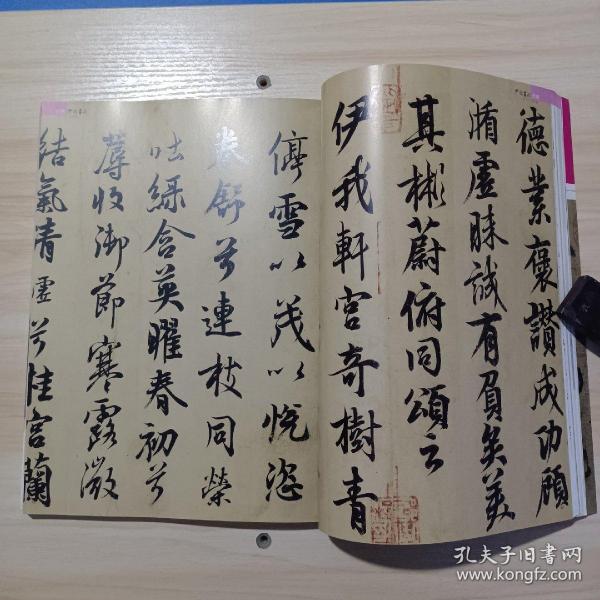 德業褒讚成功顧
循虛昧誠有負矣美
其彬蔚俯同頌云
伊我軒宮奇樹青
停雪以茂以悅恣
卷舒兮連枝同榮
吐綠含英曜春初兮
蓐收御節寒露微
結氣清虛兮桂宮蘭
孔夫子旧书网
www.kongfz.com